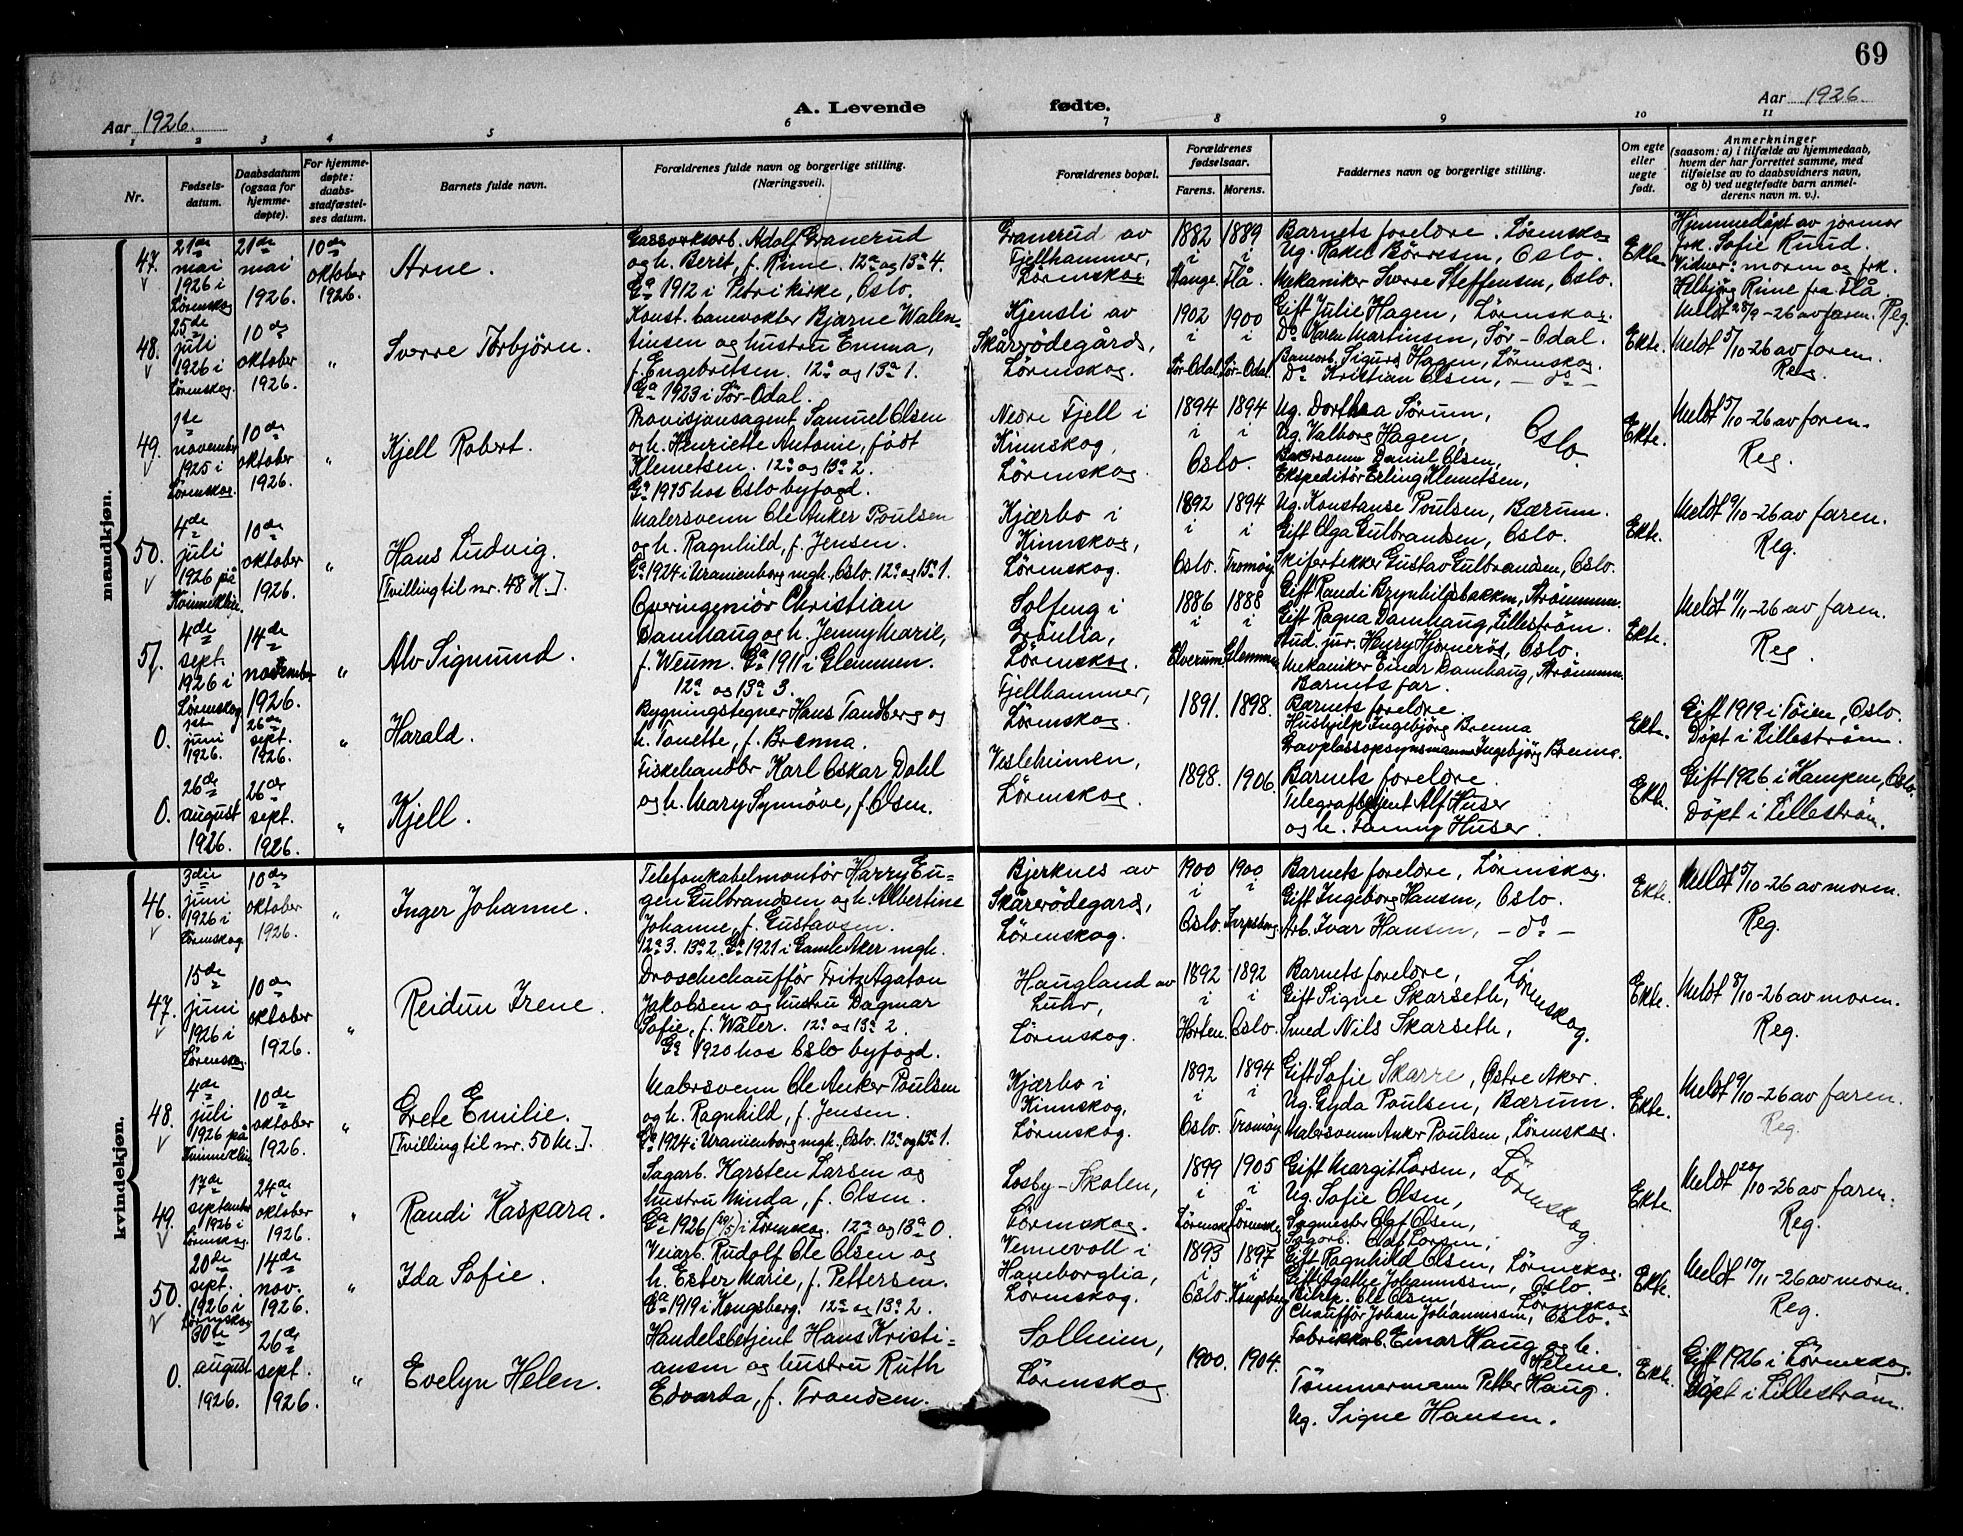 69
A. Levende fødte.
Aar 1926.
Aar 1926.
1 2 3 4 5 6 7 8 9 10 11
Nr.
Fødsels-
datum.
Daabsdatum
(ogsaa for
hjemme-
døpte).
For hjemme-
døpte:
daabs-
stadfæstel-
ses datum.
Barnets fulde navn.
Forældrenes fulde navn og borgerlige stilling.
(Næringsvei).
Forældrenes bopæl.
Forældrenes
fødselsaar.
Farens. Morens.
Faddernes navn og borgerlige stilling.
Om egte
eller
uegte
født.
Anmerkninger
(saasom: a) i tilfælde av hjemmedaab,
hvem der har forrettet samme, med
tilføielse av to daabsvidners navn,
og b) ved uegtefødte barn anmel-
derens navn m. v.).
mandkjøn.
47.
21de
mai
1926 i
Lørenskog
21de
mai
1926.
10de
oktober
1926.
Arne.
Gassverksarb. Adolf Granerud
og h. Berit, f. Rime. 12a og 13a 4.
Ga 1912 i Petri kirke, Oslo.
Granerud av
Fjellhammer,
Lørenskog
1882 1889
i i
Stange. Flå.
Barnets foreldre, Lørenskog
Ug. Rakel Børresen, Oslo.
Mekaniker Sverre Steffensen, Oslo.
Ekte.
Hjemmedøpt av jormor
frk. Sofie Ruud.
Vidner: moren og frk.
Helbjørg Rime fra Flå.
Meldt 25/9-26 av faren. Reg.
48.
25de
juli
1926 i
Lørenskog.
10de
oktober
1926.
"
Sverre Torbjørn.
Konst. banevokter Bjarne Walen-
tinsen og hustru Emma,
f. Engebretsen. 12a og 13a 1.
Ga 1923 i Sør-Odal.
Kjensli av
Skårerødegårds,
Lørenskog.
1902 1900
i i
Sør-Odal Sør-Odal
Gift Julie Hagen, Lørenskog.
Do Karen Martinsen, Sør-Odal.
Banearb. Sigurd Hagen, Lørenskog.
Do Kristian Olsen, - do -
Ekte.
Meldt 5/10-26 av faren.
Reg.
49.
1ste
november
1925 i
Lørenskog.
10de
oktober
1926.
"
Kjell Robert.
Provisjonsagent Samuel Olsen
og h. Henriette Antonie, født
Klemetsen. 12a og 13a 2.
Ga 1915 hos Oslo byfogd.
Nedre Fjell i
Kinnskog,
Lørenskog.
1894 1894
i i
Oslo.
Ug. Dorthea Sørum,
Ug. Valborg Hagen,
Bakersvenn Daniel Olsen,
Ekspeditør Erling Klemetsen,
Oslo.
Ekte.
Meldt 5/10-26 av faren.
Reg.
50.
4de
juli
1926 på
Kvinneklin.
10de
oktober
1926.
"
Hans Ludvig.
[Tvilling til nr. 48 K.].
Malersvenn Ole Anker Poulsen
og h. Ragnhild, f. Jensen.
Ga 1924 i Uranienborg mgh., Oslo. 12a og 13a 1.
Kjærbo i
Kinnskog,
Lørenskog.
1892 1894
i i
Oslo. Tromøy
Ug. Konstanse Poulsen, Bærum.
Gift Olga Gulbrandsen, Oslo.
Skifertekker Gustav Gulbrandsen, Oslo.
Ekte.
Meldt 9/10-26 av faren.
Reg.
51.
4de
sept.
1926 i
Lørenskog
14de
november
1926.
"
Alv Sigmund.
Overingeniør Christian
Damhaug og h. Jenny Marie,
f. Weum. Ga 1911 i Glemmen.
12a og 13a 3.
Solteng i
Grønlia,
Lørenskog.
1886 1888
i i
Elverum Glemmen
Gift Randi Brynhilpsbakken, Strømmen.
Gift Ragna Damhaug, Lillestrøm.
Stud. jur. Henry Hjørnerøs, Oslo.
Mekaniker Einar Damhaug, Strømmen.
Barnets far.
Ekte.
Meldt 11/11-26 av faren.
Reg.
0.
1ste
juni
1926.
26de
sept.
1926.
"
Harald.
Bygningstegner Hans Tandberg og
h. Tonette, f. Brenna.
Fjellhammer,
Lørenskog.
1891. 1898.
Barnets foreldre.
Hushjelp Ingebjørg Brenna
Gravplassopsynsmann Ingebjørg Brenna.
Ekte.
Gift 1919 i Tøien, Oslo.
Døpt i Lillestrøm.
0.
26de
august
1926.
26de
sept.
1926.
"
Kjell.
Fiskehandler Karl Oskar Dahl
og h. Mary Synnøve, f. Olsen.
Vesleheimen,
Lørenskog.
1898. 1906.
Barnets foreldre.
Telegrafbetjent Alf Huser
og h. Fanny Huser.
Ekte.
Gift 1926 i Kampen, Oslo.
Døpt i Lillestrøm.
kvindekjøn.
46.
3die
juni
1926 i
Lørenskog.
10de
oktober
1926.
"
Inger Johanne.
Telefonkabelmontør Harry Eu-
gen Gulbrandsen og h. Albertine
Johanne, f. Gustavsen.
12a 3. 13a 2. Ga 1921 i Gamle Aker mgh.
Bjerknes av
Skårerødegards,
Lørenskog.
1900 1900
i i
Oslo. Sarpsborg
Barnets foreldre, Lørenskog.
Gift Ingeborg Hansen, Oslo.
Arb. Ivar Hansen, - do -
Ekte.
Meldt 5/10-26 av moren.
Reg.
47.
15de
juni
1926 i
Lørenskog.
10de
oktober
1926.
"
Reidun Irene.
Droschechauffør Fritz Agaton
Jakobsen og hustru Dagmar
Sofie, f. Waler. 12a og 13a 2.
Ga 1920 hos Oslo byfogd.
Haugland av
Luhr,
Lørenskog.
1892 1892
i i
Horten. Oslo.
Barnets foreldre,
Gift Signe Skarseth,
Smed Nils Skarseth,
Lørenskog.
Ekte.
Meldt 8/10-26 av moren.
Reg.
48.
4de
juli
1926 på
Kvinneklin.
10de
oktober
1926.
"
Grete Emilie.
[Tvilling til nr. 50 M.].
Malersvenn Ole Anker Poulsen
og h. Ragnhild, f. Jensen.
Ga 1924 i Uranienborg mgh., Oslo. 12a og 13a 1.
Kjærbo i
Kinnskog,
Lørenskog.
1892 1894
i i
Oslo. Tromøy
Gift Sofie Skarre, Østre Aker.
Ug. Gyda Poulsen, Bærum.
Malersvenn Anker Poulsen, Lørenskog.
Ekte.
Meldt 9/10-26 av faren.
Reg.
49.
17de
september
1926 i
Lørenskog.
24de
oktober
1926.
"
Randi Kaspara.
Sagarb. Karsten Larsen og
hustru Minda, f. Olsen.
Ga 1926 (29/5) i Lørenskog. 12a og 13a 0.
Losby-Skolen,
Lørenskog.
1899 1905
i i
Lørenskg Lørenskg
Gift Margit Larsen,
Ug. Sofie Olsen,
Sagmester Olaf Olsen,
Sagarb. Olaf Larsen,
Lørenskog
Ekte.
Meldt 20/10-26 av faren.
Reg.
50.
20de
sept.
1926 i
Lørenskog
14de
nov.
1926.
"
Ida Sofie.
Veiarb. Rudolf Ole Olsen og
h. Ester Marie, f. Pettersen.
Ga 1919 i Kongsberg. 12a og 13a 2.
Vennevoll i
Haneborglia,
Lørenskog.
1893 1897
i i
Oslo. Kongsberg
Gift Ragnhild Olsen, Lørenskog.
Gift Agathe Johannessen, Oslo.
Ole Olsen, Lørenskog
Chauffør Johan Johannessen, Oslo.
Ekte.
Meldt 10/11-26 av moren.
Reg.
0.
30te
august
1926.
26de
sept.
1926.
"
Evelyn Helen.
Handelsbetjent Hans Kristi-
ansen og hustru Ruth
Edvarda, f. Trandsen.
Solheim,
Lørenskog
1900. 1904.
Fabrikkarb. Einar Haug og h.
Helene.
Tømmermann Petter Haug.
Ug. Signe Hansen.
Ekte.
Gift 1926 i Lørenskog.
Døpt i Lillestrøm.